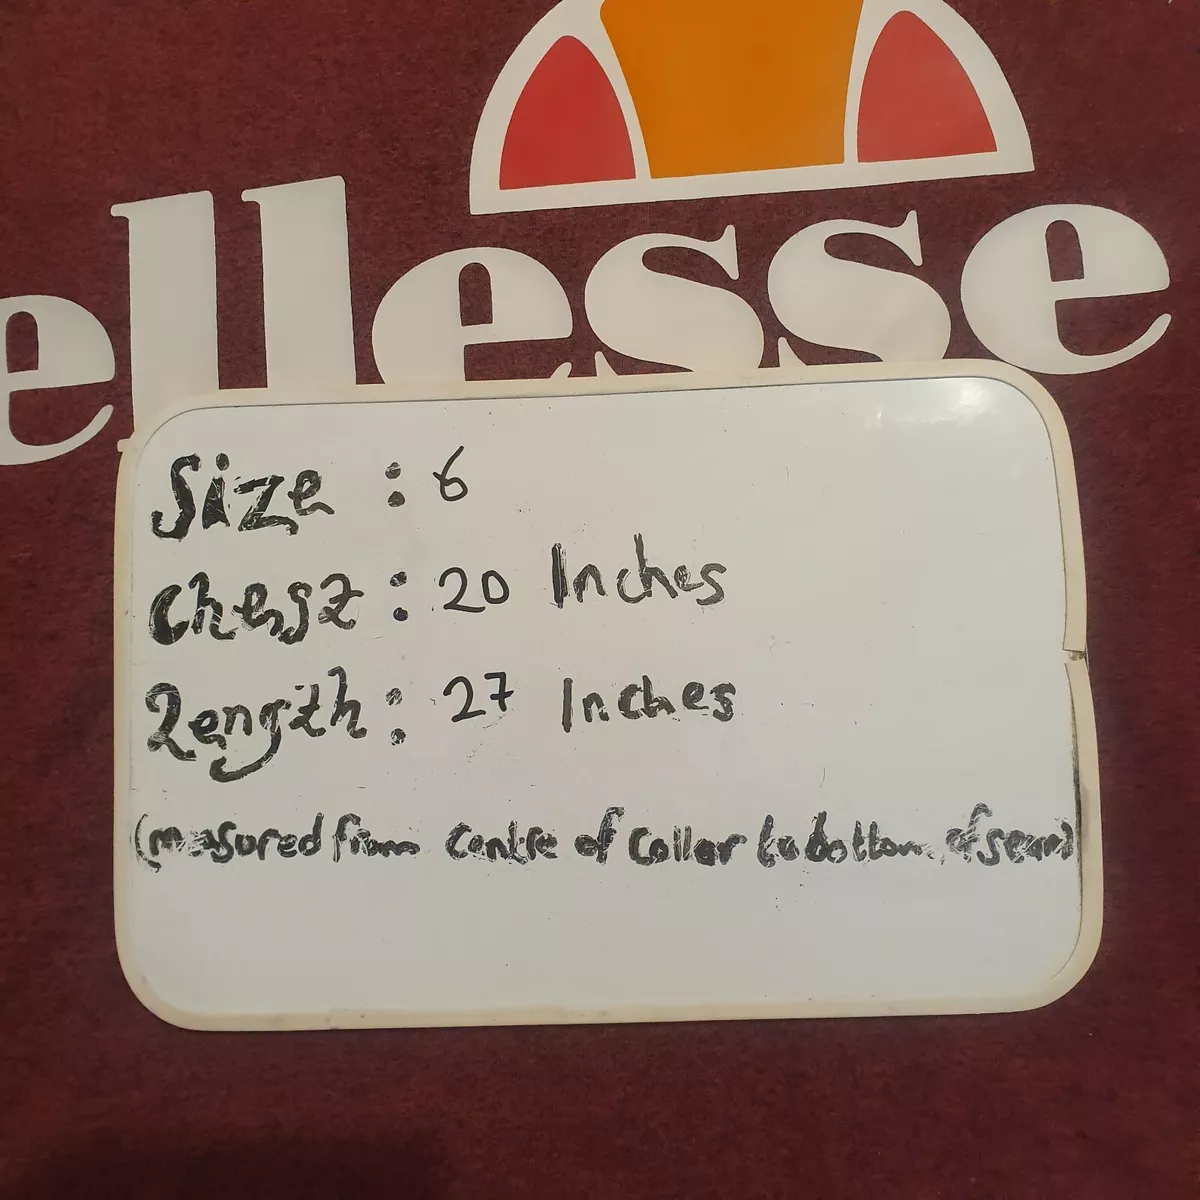 ellesse
Size : 6
Chest : 20 Inches
Length : 27 Inches
(measured from centre of collar to bottom of seam)